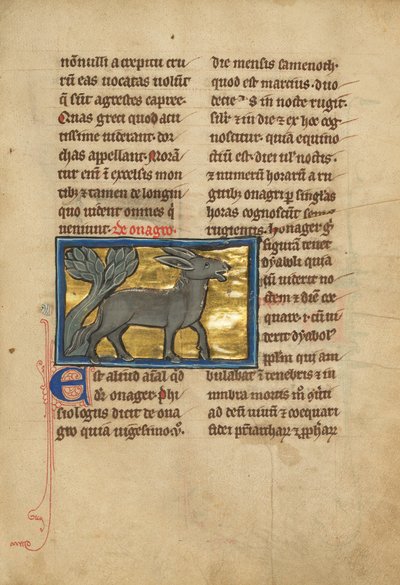 nonnulli a crepitu cru
rũ eas vocatas volũt
q̃ sũt agrestes capree.
Quas greci quod acu
tissime viderant dor
chas appellant. Morã
tur enĩ ĩ excelsis mon
tibȝ et tamen de longin
quo vident omnes q̃
veniunt. De onagro
Est aliud aĩal qd̃
dr̃ onager. Phi
siologus dicit de ona
gro quia vigesimo qͥ.
die mensis famenoth.
quod est marcius. duo
decies in nocte rugit.
et in die et ex hoc cog
noscitur. quia equino
ctiũ est. diei ul' noctis.
et numerũ horarũ a ru
gitibȝ onagri p singlas
horas cognoscũt semel
rugientis. Honager
figuram tenet
dyaboli quia
cũ viderit no
ctem et diẽ co
equare. i. cũ vi
derit dyabol'
pplm̃ qui am
bulabat ĩ tenebris et ĩ
umbra mortis m̊
ad deũ vivũ et coequari
fidei priarchaꝝ et ꝓphaꝝ